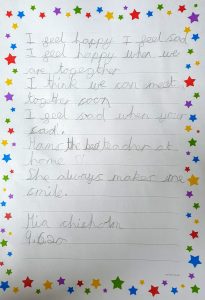 I feel happy I feel sad
I feel happy when we
are together
I think we can meet
together soon
I feel sad when your
sad.
Mams the best teacher at
home
She always makes me
smile.
Mia chisholm